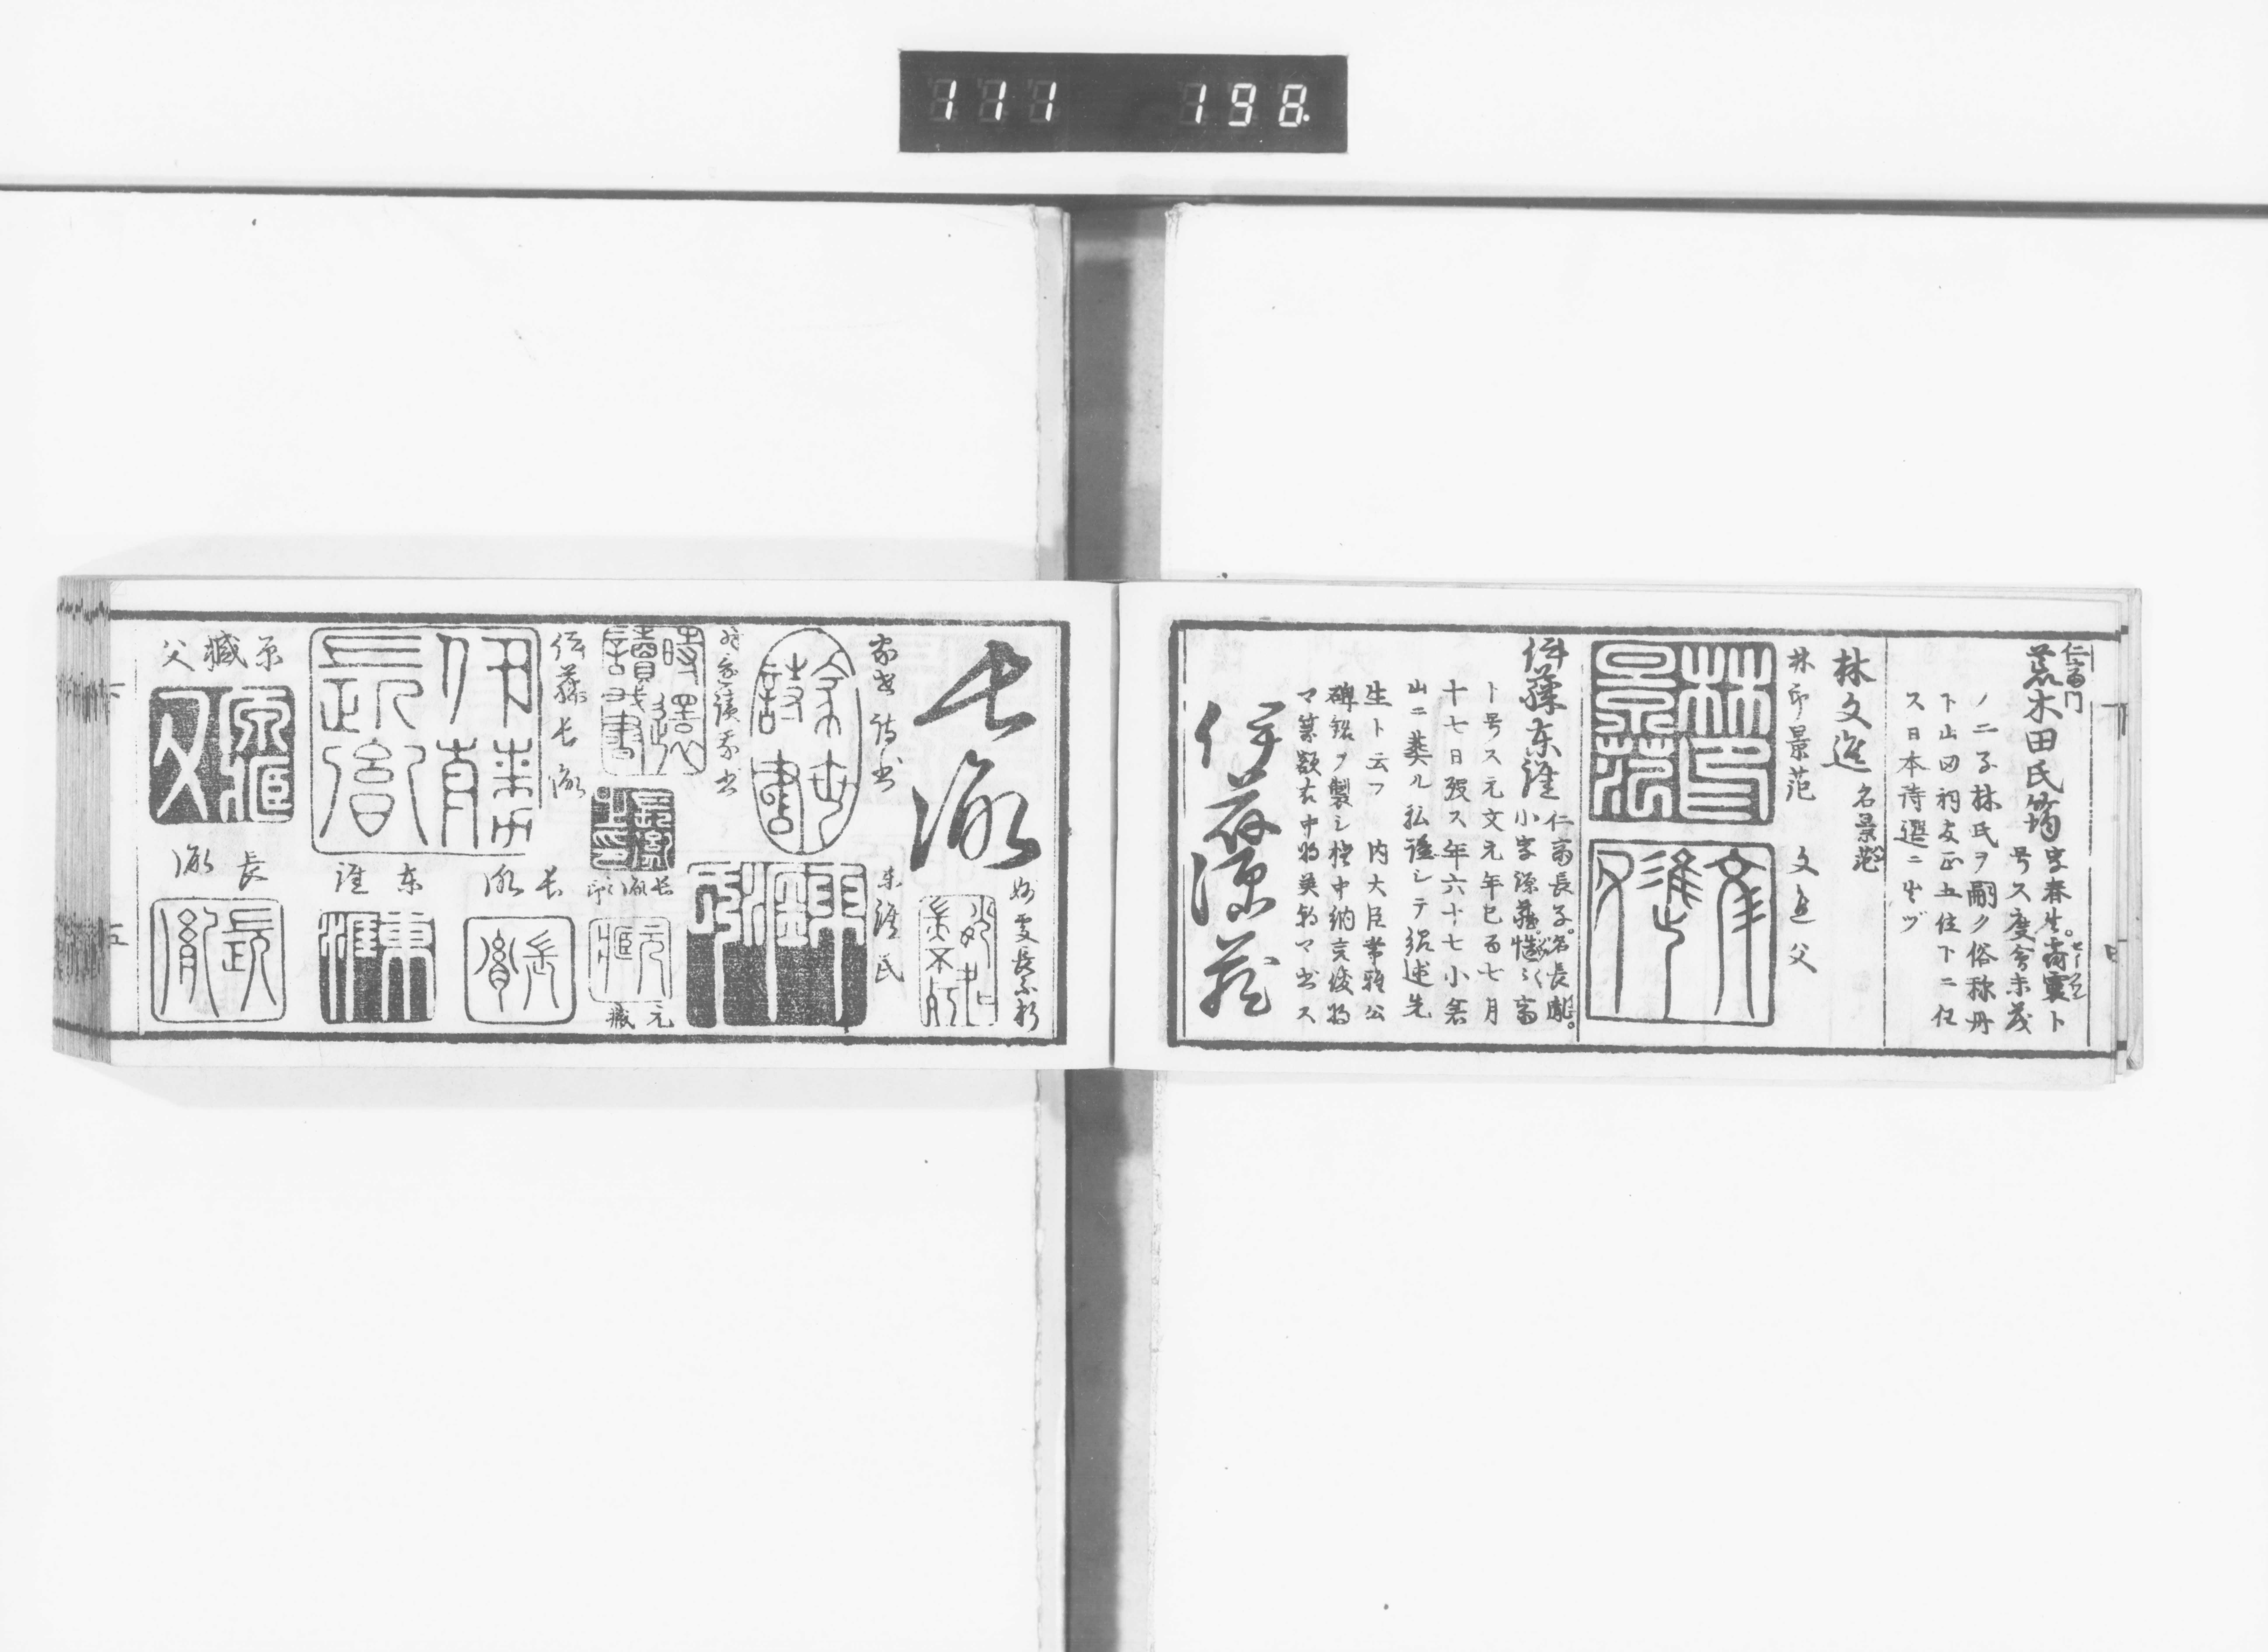 111 198.
仁斎門
荒木田氏筠 字春生。
号ス度會末茂
ノ二子林氏ヲ嗣ク俗称丹
下山田祠官正五位下ニ任
ス日本詩選ニ出ヅ
林文進 名景范
林印景范 文進父
伊藤東涯 仁斎長子。名長胤。
小字源蔵慥々斎
ト号ス元文元年七月
十七日歿ス年六十七小倉
山ニ葬ル私謚シテ紹述先
生ト云フ 内大臣常雅公
碑銘ヲ製シ権中納言俊将
マ篆額右中将英朝マ書ス
伊藤源蔵
長胤
東涯氏
伊藤長胤
長胤之印
元蔵
長胤
東涯
原臧父
長胤
下 五